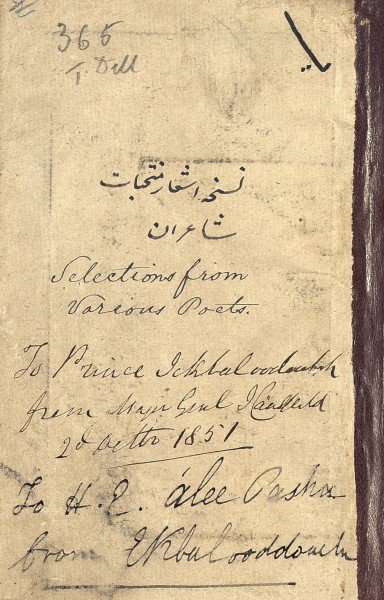 365
T. Dell
نسخه اشعار منتخبات
شاعران
Selections from
Various Poets.
To Prince Ickbalooddowlah
from Major Genl J Caulfeild
2d Octbr 1851
To H. E. álee Pasha
from Ekbalooddowlah